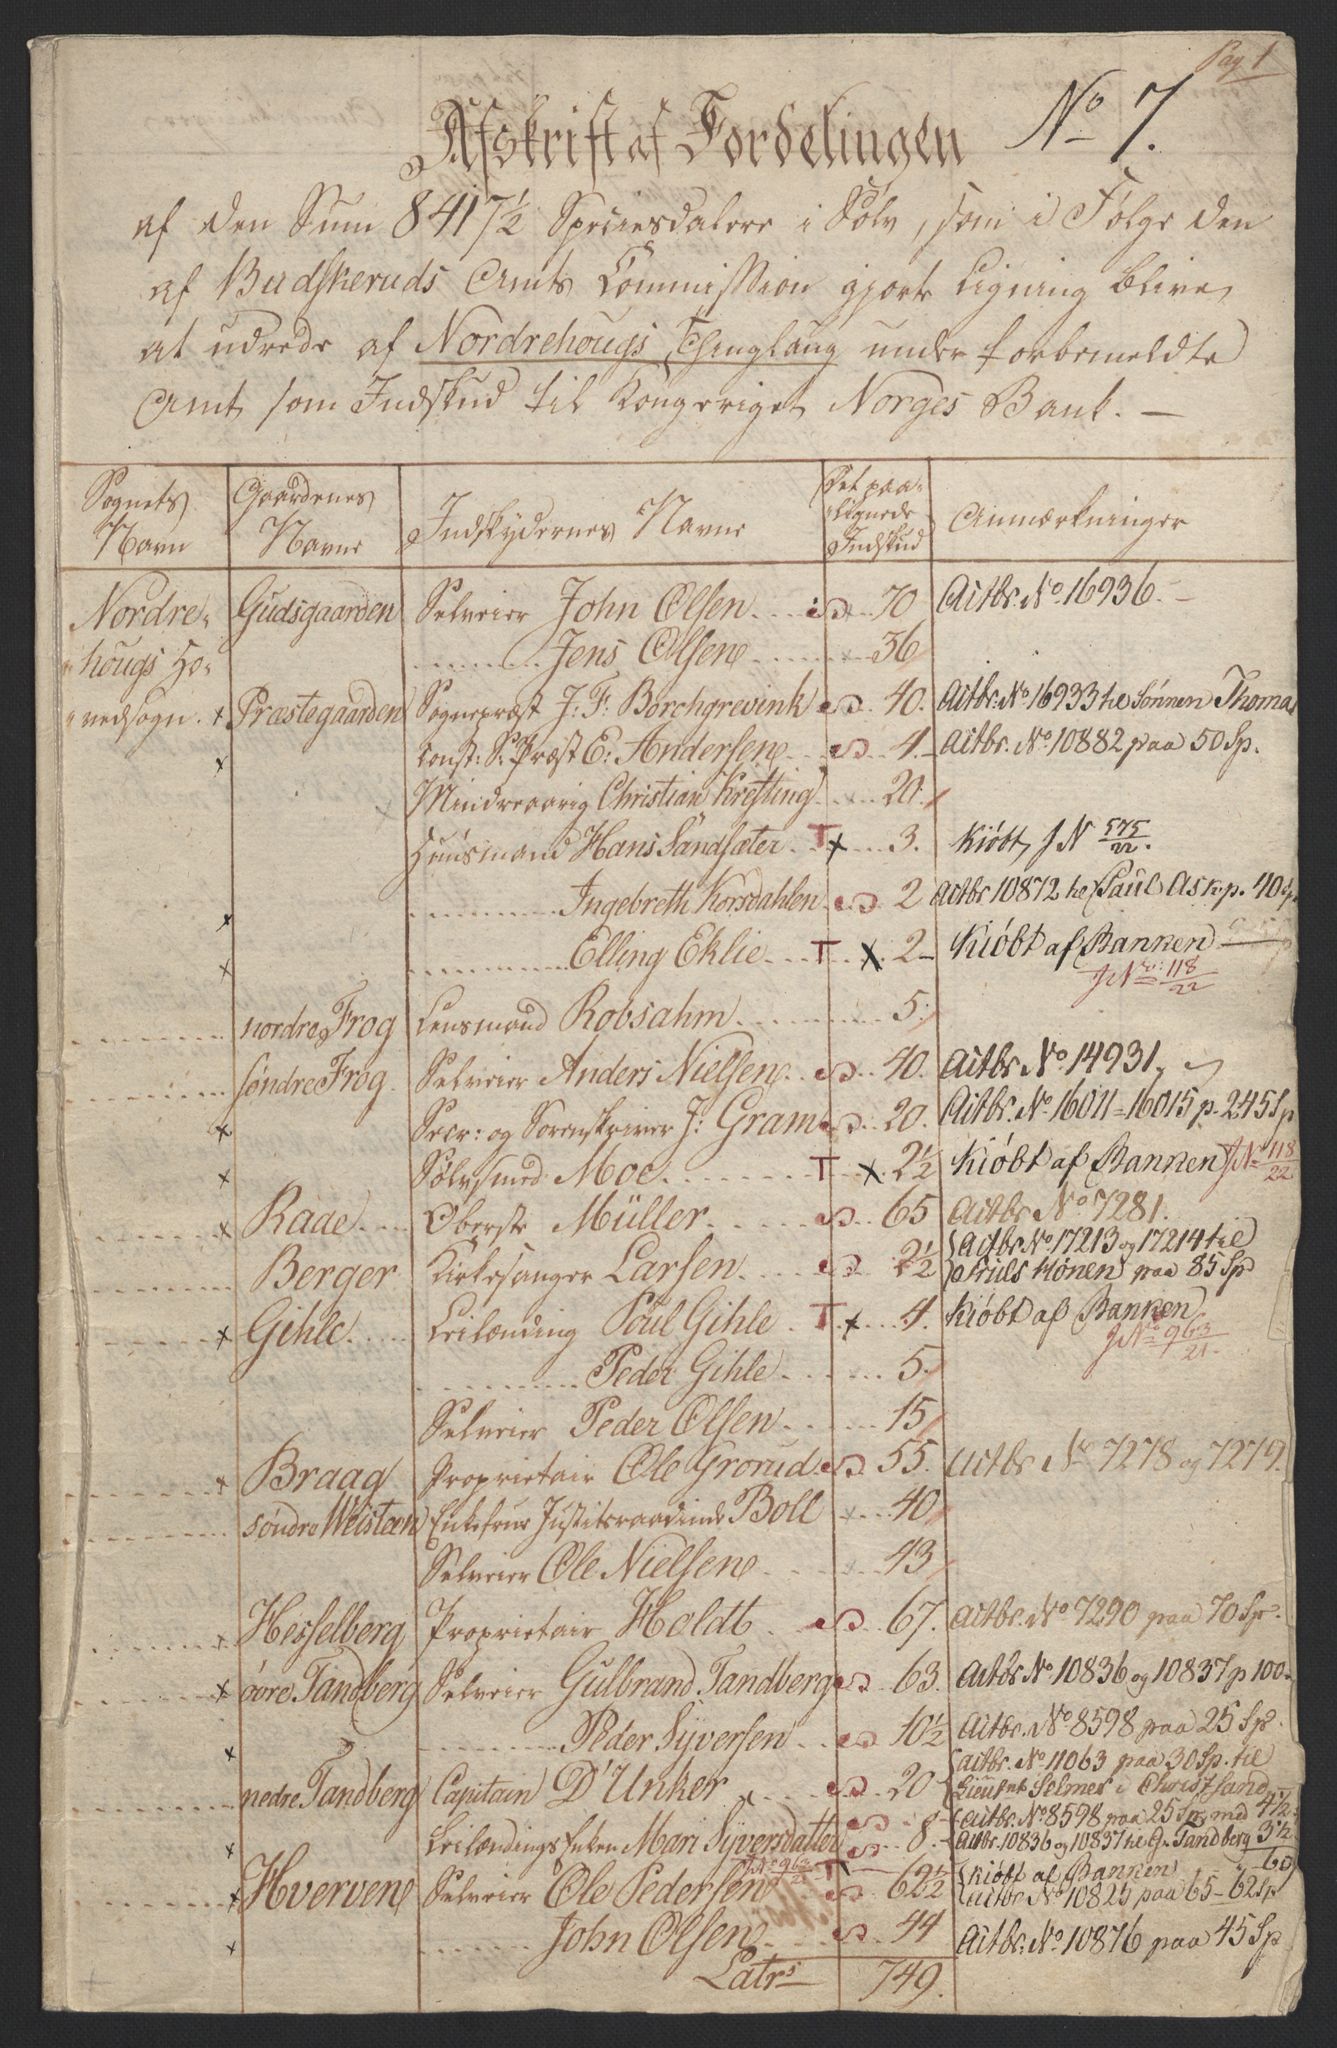 Pag 1
Afskrift af Fordelingen No 7.
af den Sum 8417½ Speciesdalere i Sølv, som i Følge den
af Budskeruds Amts Commission gjorte Ligning bliver
at udrede af Nordrehougs Thinglaug under forbemeldte
Amt som Indskud til Kongeriget Norges Bank. —
Sognets Navn | Gaardenes Navne | Indskydernes Navne | Det paalignede Indskud | Anmærkninger
Nordre- Gudsgaarden Selveier John Olsen 70 Actbr. No 16936. —
hougs Ho- Jens Olsen 36
vedsogn. x Præstegaarden Sognepræst J: F: Borchgrevink 40. Actbr. No 16933 til Sønnen Thomas
x const: S: Præst E: Andersen 4 Actbr. No 10882 paa 50 Sp.
Mindreaarig Christian Krefting 20.
Huusmand Hans Sandsæter T x 3. Kiøbt, J N 575/22.
x Ingebreth Korsdahlen 2 Actbr 10872 til Paul Ask p. 40 Sp
x Elling Eklie T x 2 Kiøbt af Banken
J No 118/22
nordre Frog Lensmand Robsahm 5.
søndre Frog Selveier Anders Nielsen 40. Actbr. No 14931.
x Secr: og Sorenskriver J: Gram 20. Actbr. No 16011 = 16015 p. 245 Sp
x Sølvsmed Moe T x 2½ Kiøbt af Banken J No 118/22
x Raae Oberst Müller 65 Actbr No 7281.
Berger Kirkesanger Larsen 2½ Actbr No 17213 og 17214 til
Truls Hønen paa 85 Sp
x Gihle Leilænding Poul Gihle T x 4. Kiøbt af Banken
J No 963/21.
Peder Gihle 5.
Selveier Peder Olsen 15
x Braag Proprietair Ole Grorud 55. Actbr No 7278 og 7279.
søndre Weisteen Enkefrue Justitsraadinde Boll 40
Selveier Ole Nielsen 43
x Hesselberg Proprietair Holdt 67. Actbr. No 7290 paa 70 Sp.
x øvre Tandberg Selveier Gulbrand Tandberg 63. Actbr No 10836 og 10837 p 100
x Peder Syversen 10½ Actbr. No 8598 paa 25 Sp.
nedre Tandberg Capitain D'Unker 20 Actbr. No 11063 paa 30 Sp. til
Lieutnt Selmer i Christsand
x Leilændings Enken Mari Syversdatter 8. Actbr. No 8598 paa 25 Sp. med 4½
Actbr. 10836 og 10837 til G. Tandberg 3½
x Hvervene Selveier Ole Pedersen J No 963/21 T 62½ Kiøbt af Banken
Actbr No 10825 paa 65 – 62 Sp
x John Olsen 44 Actbr. No 10876 paa 45 Sp
Latrs 749.